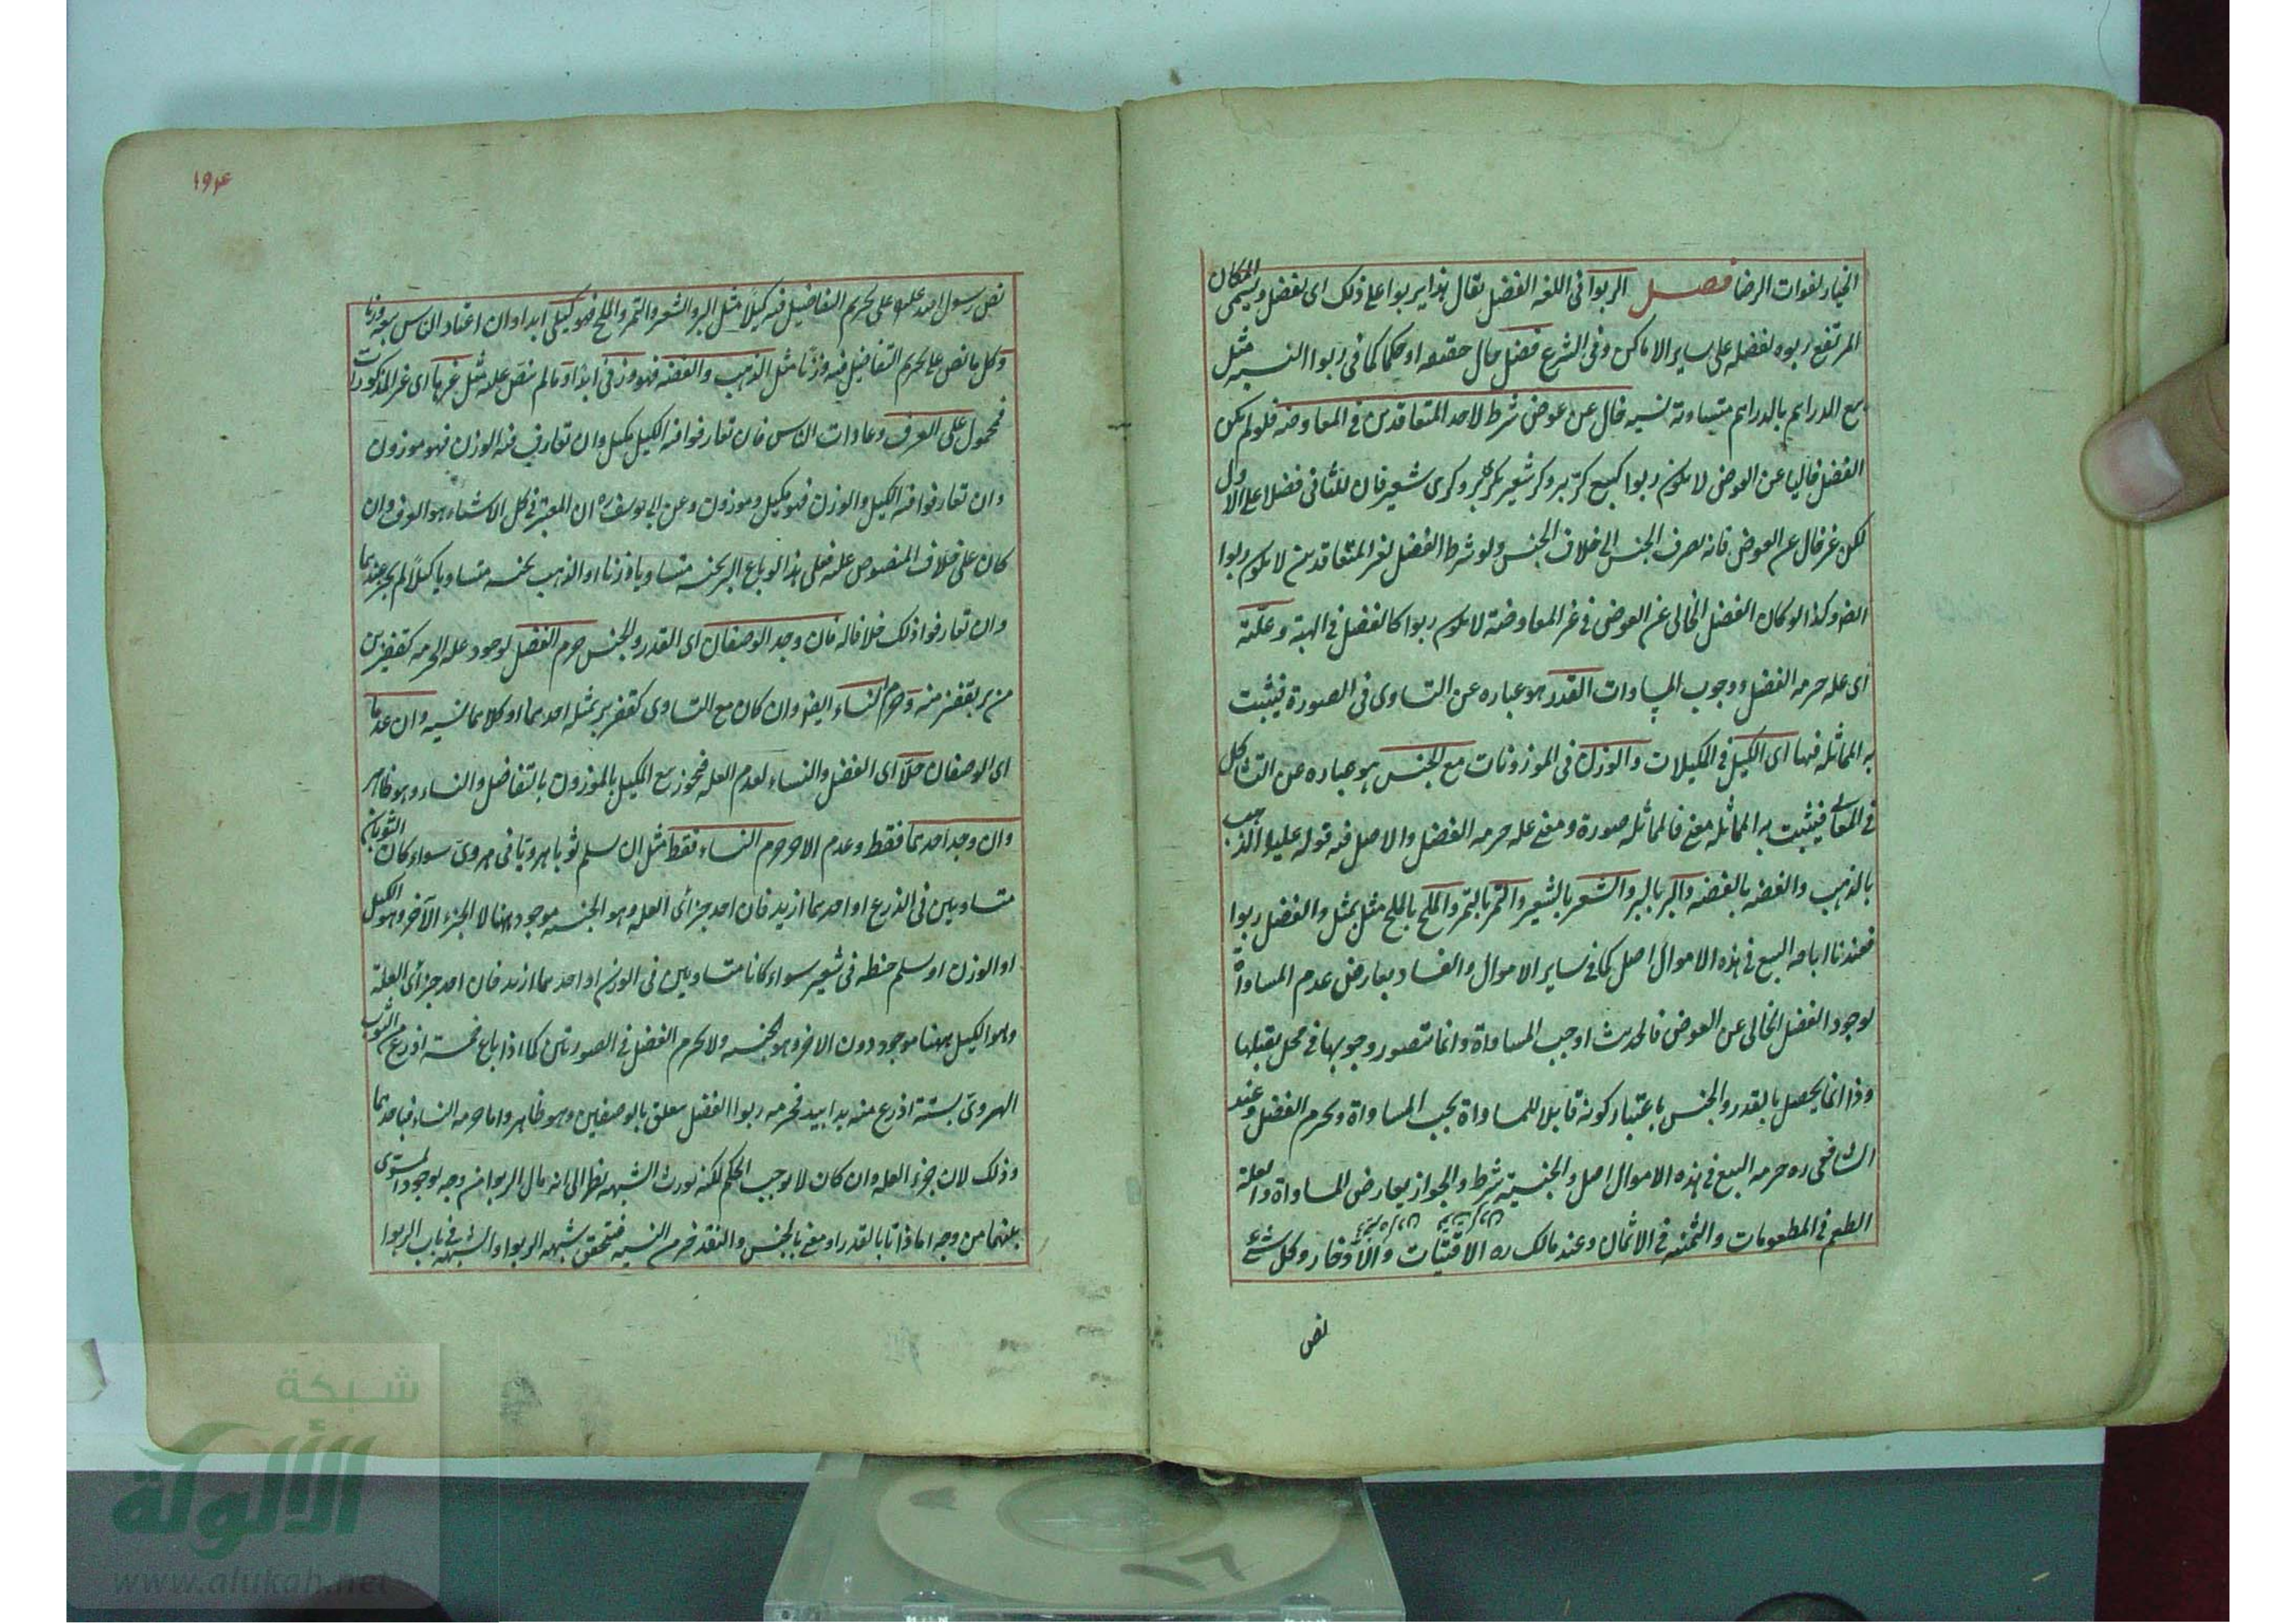 الخيار لفوات الرضا فصل الربوا فى اللغة الفضل يقال هذا يربوا على ذلك اى يفضل ويسمى المكان
المرتفع ربوه لفضله على ساير الاماكن وفى الشرع فضل مال حقيقه او حكما كما فى ربوا النسيه مثل
بيع الدراهم بالدراهم متساوية نسيه خال عن عوض شرط لاحد المتعاقدين فى المعاوضه فلو لم يكن
الفضل خاليا عن العوض لا يكون ربوا كبيع كرّ بر وكر شعير بكرى بر وكرى شعير فان للثانى فضلا على الاول
لكن غير خال عن العوض فانه يصرف الجنس الى خلاف الجنس ولو شرط الفضل لغير المتعاقدين لا يكون ربوا
ايضا وكذا لو كان الفضل الخالى عن العوض فى غير المعاوضة لا يكون ربوا كالفضل فى الهبة وعلّته
اى عله حرمه الفضل ووجوب المساوات القدر هو عباره عن التساوى فى الصورة فيثبت
به المماثله فيها اى الكيل فى المكيلات والوزن فى الموزونات مع الجنس هو عباره عن التشاكل
فى المعانى فيثبت به المماثله معنى فالمماثله صورة ومعنى عله حرمه الفضل والاصل فيه قوله عليه الذهب
بالذهب والفضه بالفضه والبر بالبر والشعير بالشعير والتمر بالتمر والملح بالملح مثل بمثل والفضل ربوا
فعندنا اباحه البيع فى هذه الاموال اصل كما فى ساير الاموال والفساد بعارض عدم المساواة
لوجود الفضل الخالى عن العوض فالحديث اوجب المساواة وانما تتصور وجوبها فى محل يقبلها
وذا انما يحصل بالقدر والجنس باعتبار كونه قابلا للمساواة يجب المساواة ويحرم الفضل وعند
الشافعى ره حرمه البيع فى هذه الاموال اصل والجنسية شرط والجواز بعارض المساواة والعلة
الطعم فى المطعومات والثمنيه فى الاثمان وعند مالك ره الاقتيات والادخار وكل شئ
نص
١٩٤
نص رسول الله عليه على تحريم التفاضل فيه كيلاً مثل البر والشعير والتمر والملح فهو كيلى ابدا وان اعتاد الناس بيعه وزنا
وكل ما نص على تحريم التفاضل فيه وزنًا مثل الذهب والفضه فهو وزنى ابدًا وما لم ينص عليه مثل غيرها اى غير المذكورات
فمحمول على العرف وعادات الناس فان تعارفوا فيه الكيل مكيل وان تعارف فيه الوزن فهو موزون
وان تعارفوا فيه الكيل والوزن فهو مكيل وموزون وعن ابى يوسف ره ان المعتبر فى كل الاشياء هو العرف وان
كان على خلاف المنصوص عليه فعلى هذا لو باع البر بجنسه متساويا وزنا او الذهب بجنسه متساويا كيلاً لم يجز عندهما
وان تعارفوا ذلك خلافا له فان وجد الوصفان اى القدر والجنس حرم الفضل لوجود عله الحرمه كقفيزين
من بر بقفيز منه وحرم النساء ايضا وان كان مع التساوى كقفيز بر بمثله احدهما او كلاهما نسيه وان عدما
اى الوصفان حلّا اى الفضل والنساء لعدم العله فيجوز بيع المكيل بالموزون بالتفاضل والنساء وهو ظاهر
وان وجد احدهما فقط وعدم الاخر حرم النساء فقط مثل ان سلم ثوبا هرويّا فى هروى سواء كان الثوبان
متساويين فى الذرع او احدهما ازيد فان احد جزأى العله وهو الجنسيه موجود ههنا لا الجزء الآخر وهو الكيل
او الوزن او سلم حنطه فى شعير سواء كانا متساويين فى الوزن او احدهما ازيد فان احد جزأى العلة
وهو الكيل ههنا موجود دون الاخر وهو الجنسيه ولا يحرم الفضل فى الصورتين كما اذا باع خمسة اذرع من الثوب
الهروى بستة اذرع منه يدا بيد فحرمه ربوا الفضل يتعلق بالوصفين وهو ظاهر واما حرمه النساء فباحدهما
وذلك لان جزء العله وان كان لا يوجب الحكم لكنه يورث الشبهه نظرا الى انه مال الربوا من وجه لوجود المستوى
بينهما من وجه اما ذاتا بالقدر او معنى بالجنس والنقد خير من النسيه فيتحقق شبهه الربوا والشبهه فى باب الربوا
شبكة
الألوكة
www.alukah.net